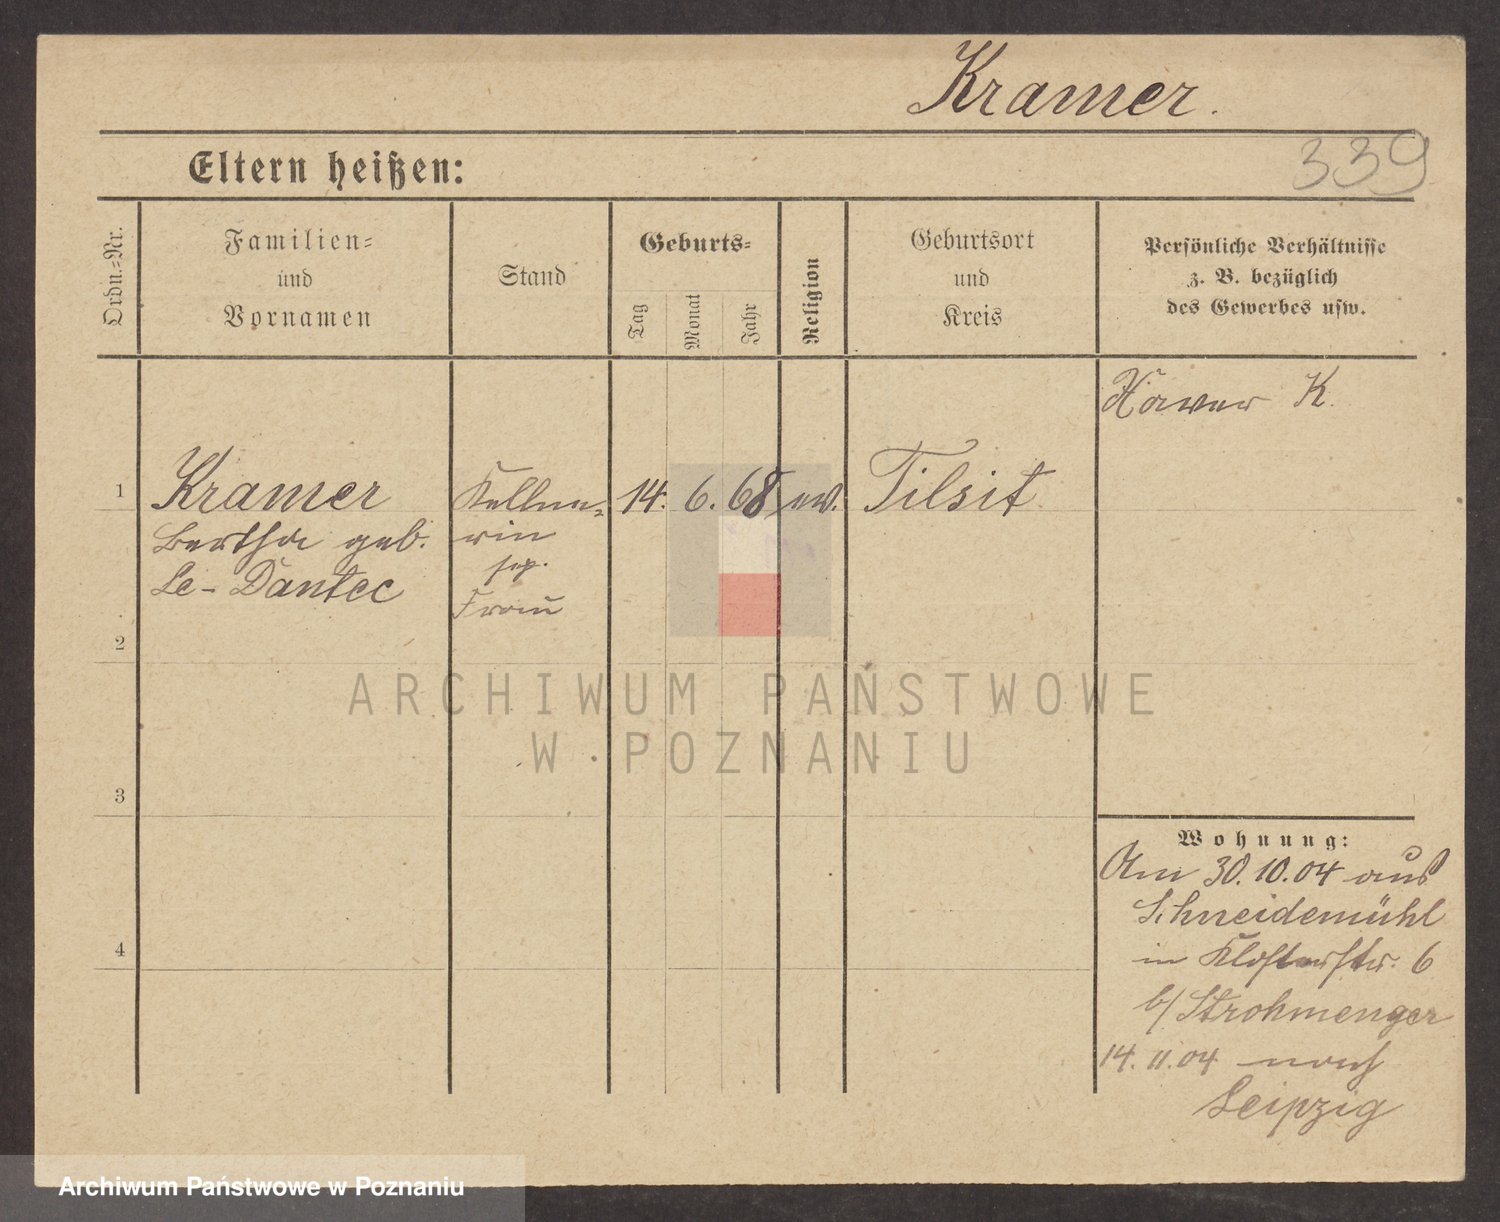 Kramer.
339
Eltern heißen:
Ordn.-Nr.
Familien-
und
Vornamen
Stand
Geburts-
Tag
Monat
Jahr
Religion
Geburtsort
und
Kreis
Persönliche Verhältnisse
z. B. bezüglich
des Gewerbes usw.
K.
1 Kramer Kellne- 14. 6. 68 ev. Tilsit
Bertha geb. rin
Le-Dantec sep.
Frau
2
3
4
ARCHIWUM PAŃSTWOWE
W POZNANIU
Wohnung:
Am 30.10.04 aus
Schneidemühl
in Klosterstr. 6
b/Strohmenger
14.11.04 nach
Leipzig
Archiwum Państwowe w Poznaniu